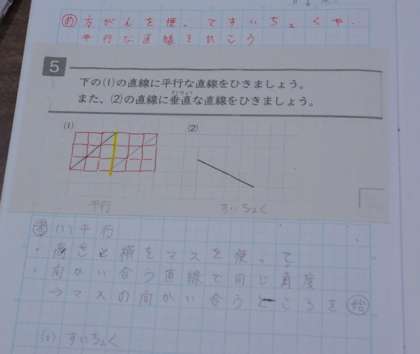 め 方がんを使ってすいちょくや、
平行な直線をひこう
5
下の(1)の直線に平行な直線をひきましょう。
また、(2)の直線に垂直な直線をひきましょう。
(1) (2)
平行 すいちょく
(1) 平行
・高さと横をマスを使って
・向かい合う直線で同じ角度
→マスの向かい合うところを
(2) すいちょく